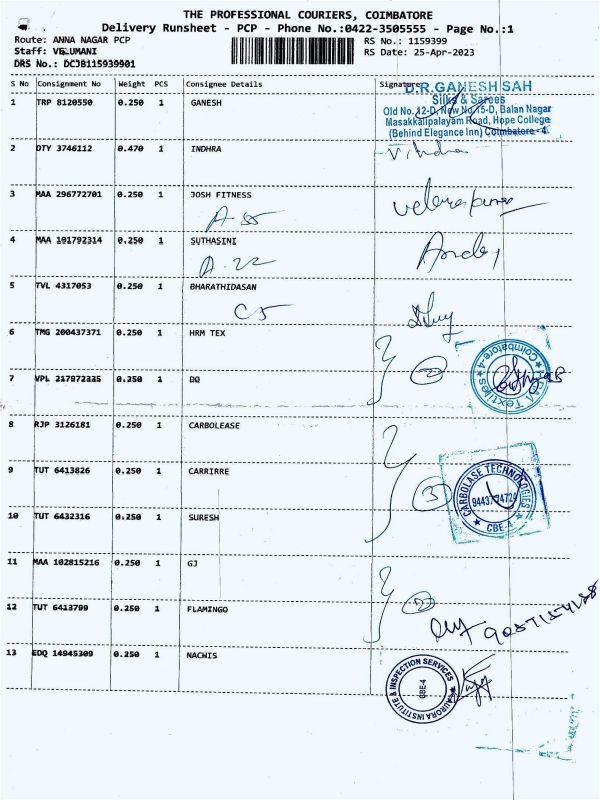 THE PROFESSIONAL COURIERS, COIMBATORE
Delivery Runsheet - PCP - Phone No.:0422-3505555 - Page No.:1
Route: ANNA NAGAR PCP RS No.: 1159399
Staff: VELUMANI RS Date: 25-Apr-2023
DRS No.: DCJB115939901
S No Consignment No Weight PCS Consignee Details Signature
D.R.GANESH SAH
Silks & Sarees
Old No. 12-D, New No.15-D, Balan Nagar
Masakkalipalayam Road, Hope College
(Behind Elegance Inn) Coimbatore - 4
1 TRP 8120550 0.250 1 GANESH
2 DTY 3746112 0.470 1 INDHRA
3 MAA 296772701 0.250 1 JOSH FITNESS
A-55
4 MAA 101792314 0.250 1 SUTHASINI
A-22
5 TVL 4317053 0.250 1 BHARATHIDASAN
C5
6 TMG 200437371 0.250 1 HRM TEX
2
Textiles Coimbatore-4
7 VPL 217972335 0.250 1 DO
8 RJP 3126181 0.250 1 CARBOLEASE
9 TUT 6413826 0.250 1 CARRIRRE
3
CARBOLASE TECHNOLOGIES
CBE-4
10 TUT 6432316 0.250 1 SURESH
11 MAA 102815216 0.250 1 GJ
12 TUT 6413799 0.250 1 FLAMINGO
13 EDQ 14945309 0.250 1 NACWIS
AURORA INSTITUTE & INSPECTION SERVICES
CBE-4